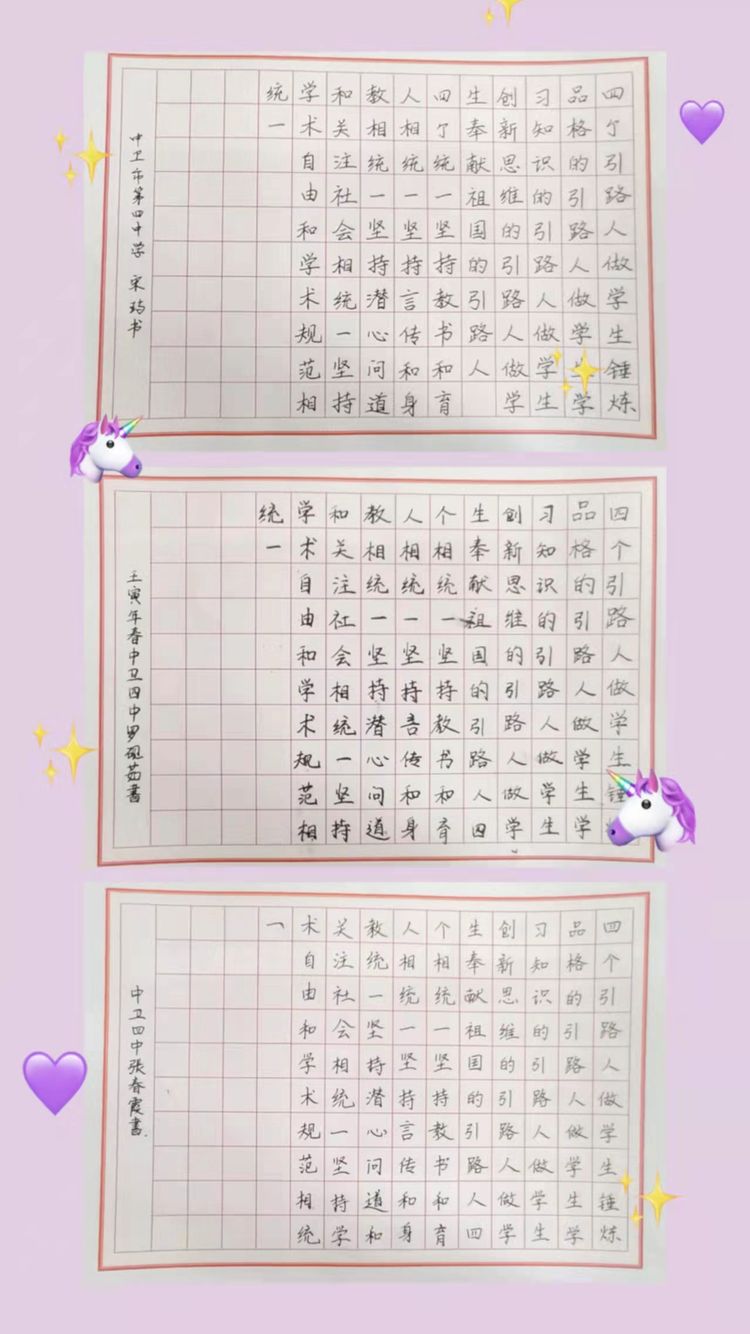 四个引路人做学生锤炼
品格的引路人做学生学
习知识的引路人做学生
创新思维的引路人做学
生奉献祖国的引路人
四个统一坚持教书和育
人相统一坚持言传和身
教相统一坚持潜心问道
和关注社会相统一坚持
学术自由和学术规范相
统一
中卫市第四中学 宋书
四个引路人做学生锤
品格的引路人做学生学
习知识的引路人做学生
创新思维的引路人做学
生奉献祖国的引路人四
个相统一坚持教书和育
人相统一坚持言传和身
教相统一坚持潜心问道
和关注社会相统一坚持
学术自由和学术规范相
统一
壬寅年春中卫四中罗砚茹書
四个引路人做学生锤炼
品格的引路人做学生学
习知识的引路人做学生
创新思维的引路人做学
生奉献祖国的引路人四
个相统一坚持教书和育
人相统一坚持言传和身
教统一坚持潜心问道和
关注社会相统一坚持学
术自由和学术规范相统
一
中卫四中張春霞書